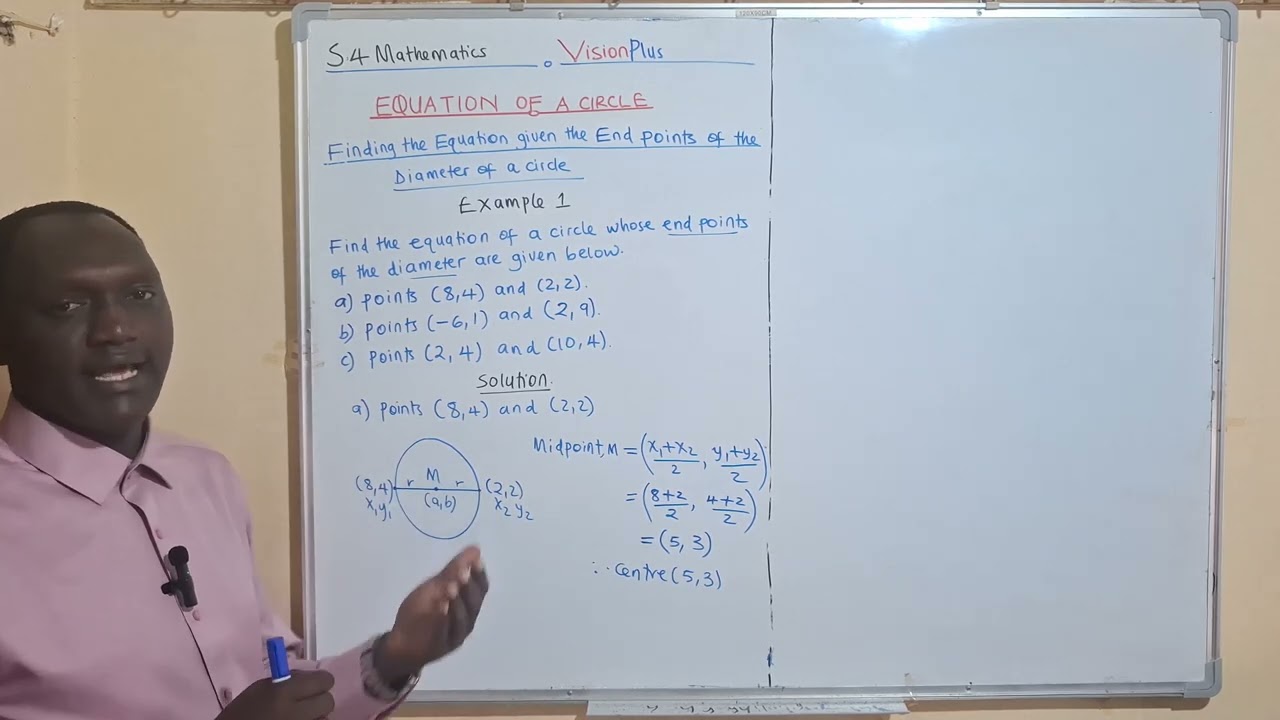 120X90CM
S.4 Mathematics VisionPlus
EQUATION OF A CIRCLE
Finding the Equation given the End points of the
Diameter of a circle
Example 1
Find the equation of a circle whose end points
of the diameter are given below.
a) points (8,4) and (2,2).
b) points (-6,1) and (2,9).
c) points (2, 4) and (10,4).
Solution.
a) points (8,4) and (2,2)
M
r r
(8,4) (2,2)
(a,b)
x₁y₁ x₂ y₂
Midpoint, M = (x₁+x₂/2, y₁+y₂/2)
= (8+2/2, 4+2/2)
= (5, 3)
∴ Centre (5,3)